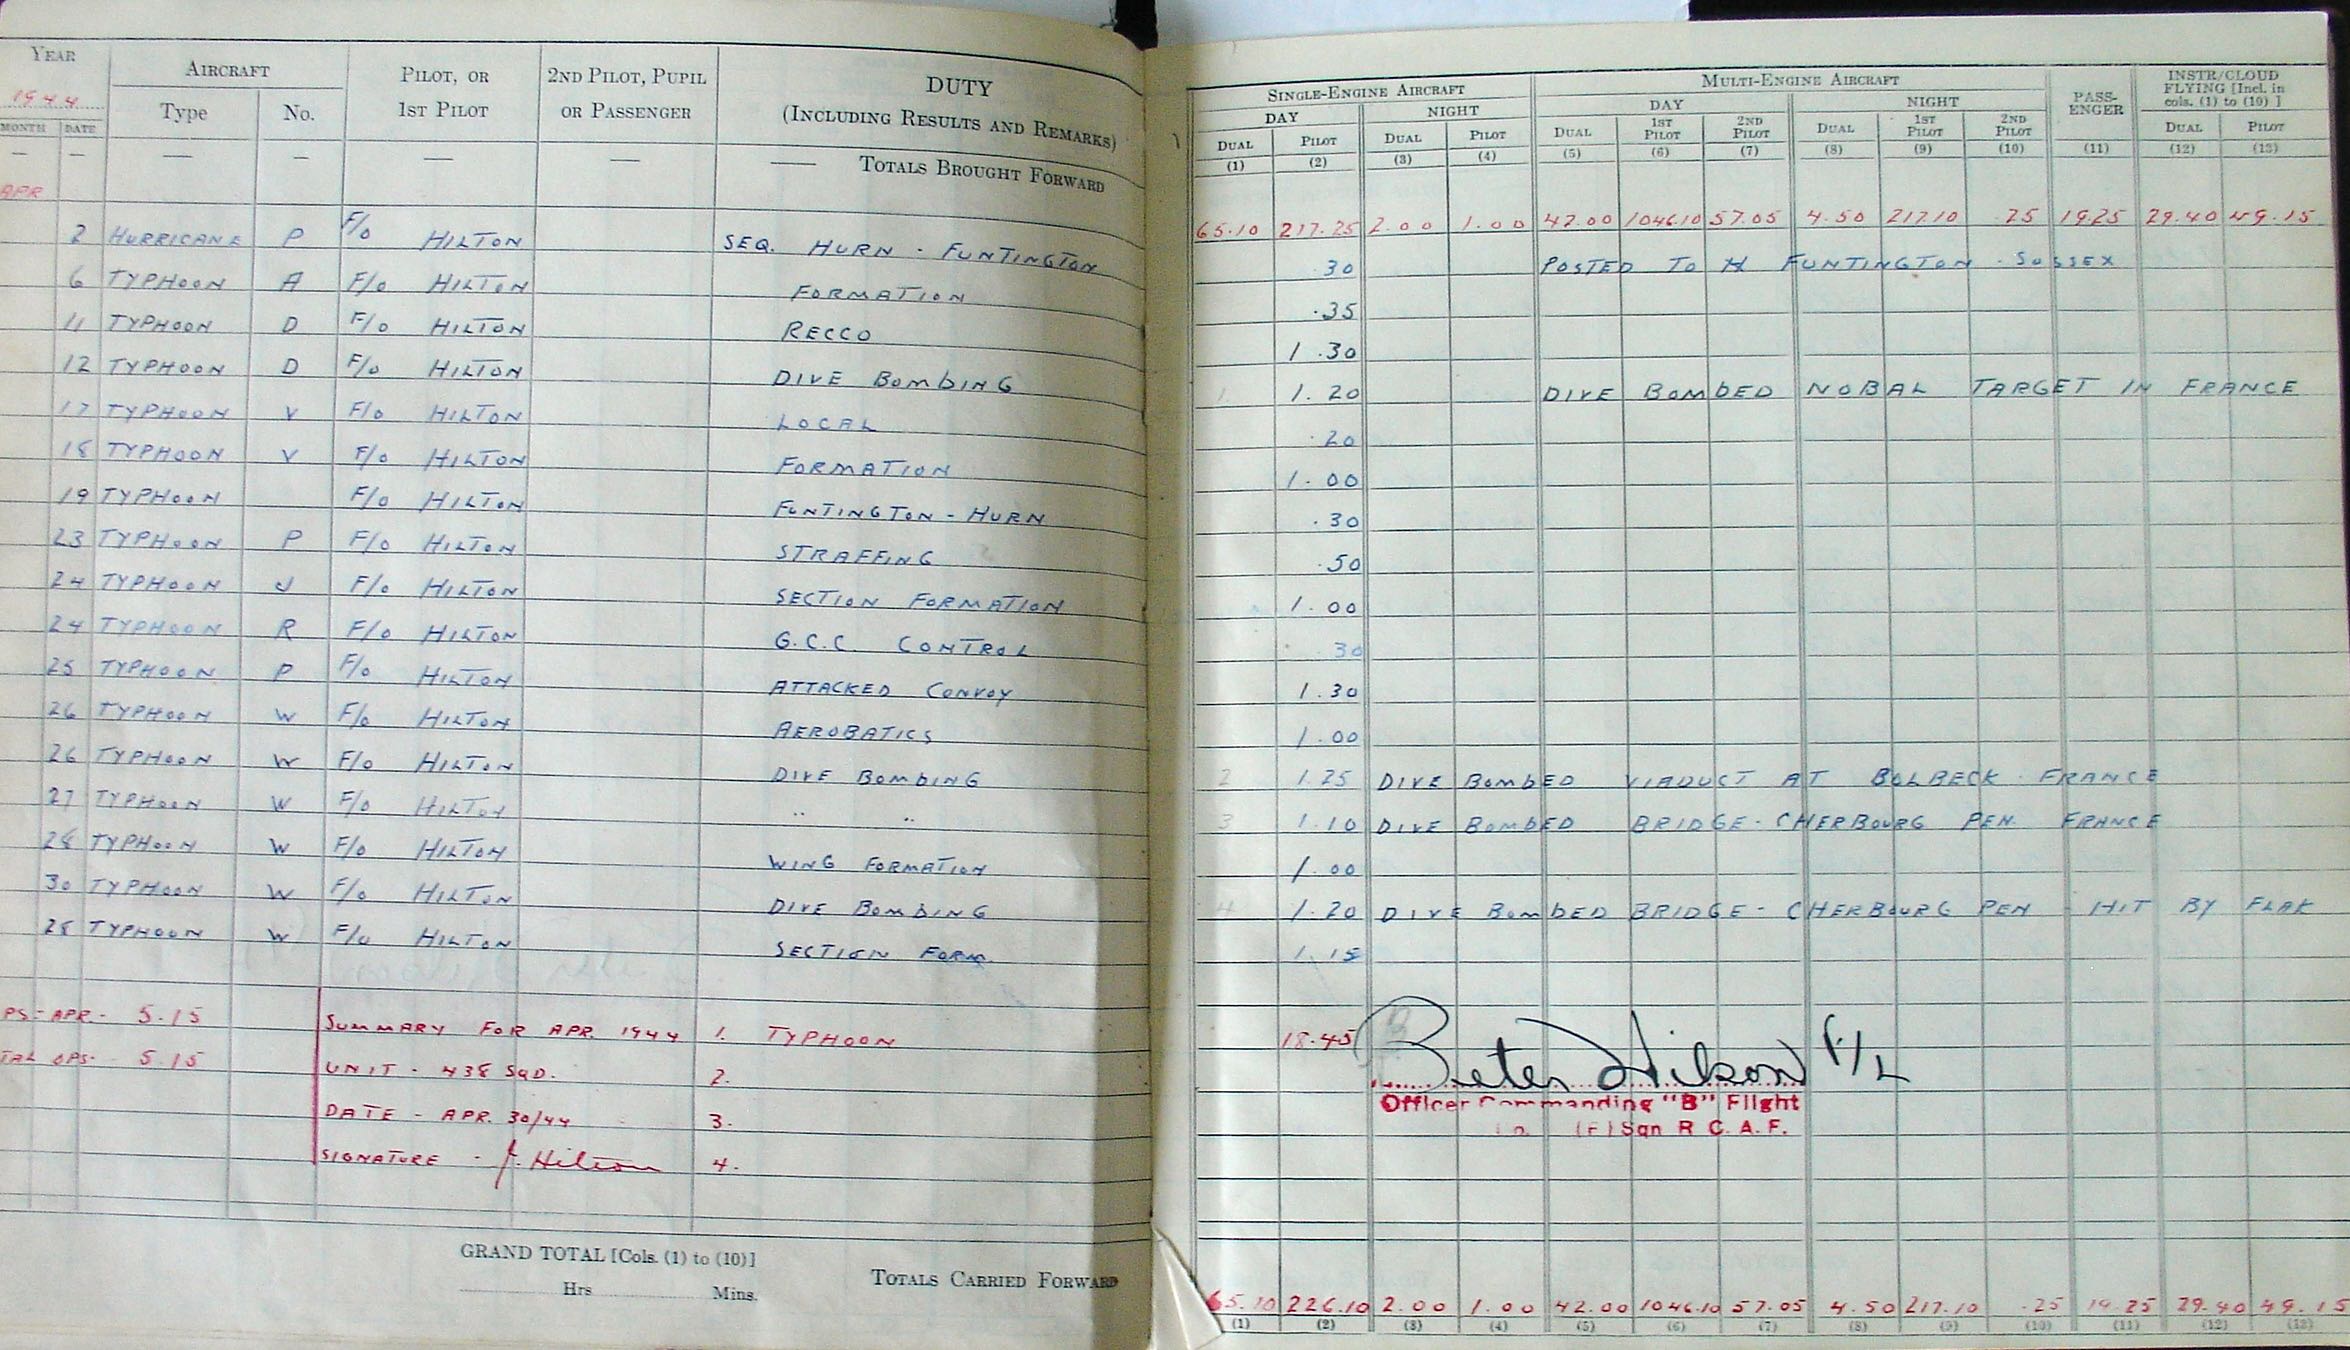 YEAR AIRCRAFT PILOT, OR 2ND PILOT, PUPIL DUTY SINGLE-ENGINE AIRCRAFT MULTI-ENGINE AIRCRAFT PASS- INSTR/CLOUD
1944 Type No. 1ST PILOT OR PASSENGER (INCLUDING RESULTS AND REMARKS) DAY NIGHT DAY NIGHT ENGER FLYING [Incl. in
cols. (1) to (10) ]
MONTH DATE DUAL PILOT DUAL PILOT DUAL 1ST PILOT 2ND PILOT DUAL 1ST PILOT 2ND PILOT DUAL PILOT
— — — — — — — TOTALS BROUGHT FORWARD (1) (2) (3) (4) (5) (6) (7) (8) (9) (10) (11) (12) (13)
APR 65.10 217.25 2.00 1.00 42.00 1046.10 57.05 4.50 217.10 .25 19.25 29.40 49.15
2 HURRICANE P F/o HILTON SEQ. HURN - FUNTINGTON .30 POSTED TO FUNTINGTON - SUSSEX
6 TYPHOON A F/o HILTON FORMATION .35
11 TYPHOON D F/o HILTON RECCO 1.30
12 TYPHOON D F/o HILTON DIVE BOMBING 1. 1.20 DIVE BOMBED NOBAL TARGET IN FRANCE
17 TYPHOON V F/o HILTON LOCAL .20
18 TYPHOON V F/o HILTON FORMATION 1.00
19 TYPHOON F/o HILTON FUNTINGTON - HURN .30
23 TYPHOON P F/o HILTON STRAFFING .50
24 TYPHOON J F/o HILTON SECTION FORMATION 1.00
24 TYPHOON R F/o HILTON G.C.C. CONTROL .30
25 TYPHOON P F/o HILTON ATTACKED CONVOY 1.30
26 TYPHOON W F/o HILTON AEROBATICS 1.00
26 TYPHOON W F/o HILTON DIVE BOMBING 2 1.25 DIVE BOMBED VIADUCT AT BOLBECK - FRANCE
27 TYPHOON W F/o HILTON " " 3 1.10 DIVE BOMBED BRIDGE - CHERBOURG PEN. FRANCE
28 TYPHOON W F/o HILTON WING FORMATION 1.00
30 TYPHOON W F/o HILTON DIVE BOMBING 4 1.20 DIVE BOMBED BRIDGE - CHERBOURG PEN - HIT BY FLAK
28 TYPHOON W F/o HILTON SECTION FORM. 1.15
PS - APR. - 5.15 SUMMARY FOR APR. 1944 1. TYPHOON 18.45 Peter Wilson F/L
TAL OPS. - 5.15 UNIT - 438 SQD. 2.
Officer Commanding "B" Flight
DATE - APR. 30/44 3. (F) Sqn R C. A. F.
SIGNATURE - J. Hilton 4.
GRAND TOTAL [Cols. (1) to (10)]
Hrs Mins. TOTALS CARRIED FORWARD
65.10 226.10 2.00 1.00 42.00 1046.10 57.05 4.50 217.10 .25 19.25 29.40 49.15
(1) (2) (3) (4) (5) (6) (7) (8) (9) (10) (11) (12) (13)